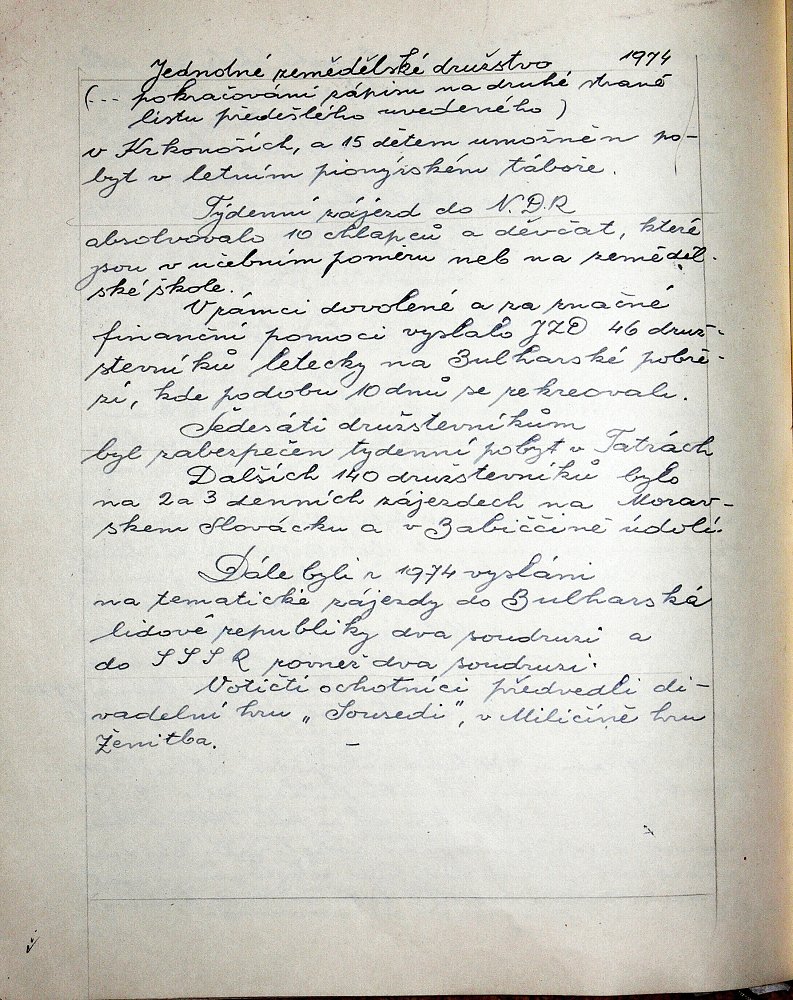 Jednotné zemědělské družstvo 1974
(... pokračování zápisu na druhé straně
listu předešlého uvedeného)
v Krkonoších, a 15 dětem umožněn po-
byt v letním pionýrském táboře.
Týdenní zájezd do N.D.R
absolvovalo 10 chlapců a děvčat, které
jsou v učebním poměru neb na zeměděl-
ské škole.
V rámci dovolené a za značné
finanční pomoci vyslalo JZD 46 druž-
stevníků letecky na Bulharské pobře-
ží, kde podobu 10 dnů se rekreovali.
Šedesáti družstevníkům
byl zabezpečen tydenní pobyt v Tatrách
Dalších 140 družstevníků bylo
na 2 a 3 denních zájezdech na Morav-
skem Slovácku a v Babiččině údolí.
Dále byli r 1974 vysláni
na tematické zájezdy do Bulharská
lidové republiky dva soudruzi a
do SSSR rovněž dva soudruzi.
Votičtí ochotníci předvedli di-
vadelní hru „Sousedi", v Miličíně hru
Ženitba. –